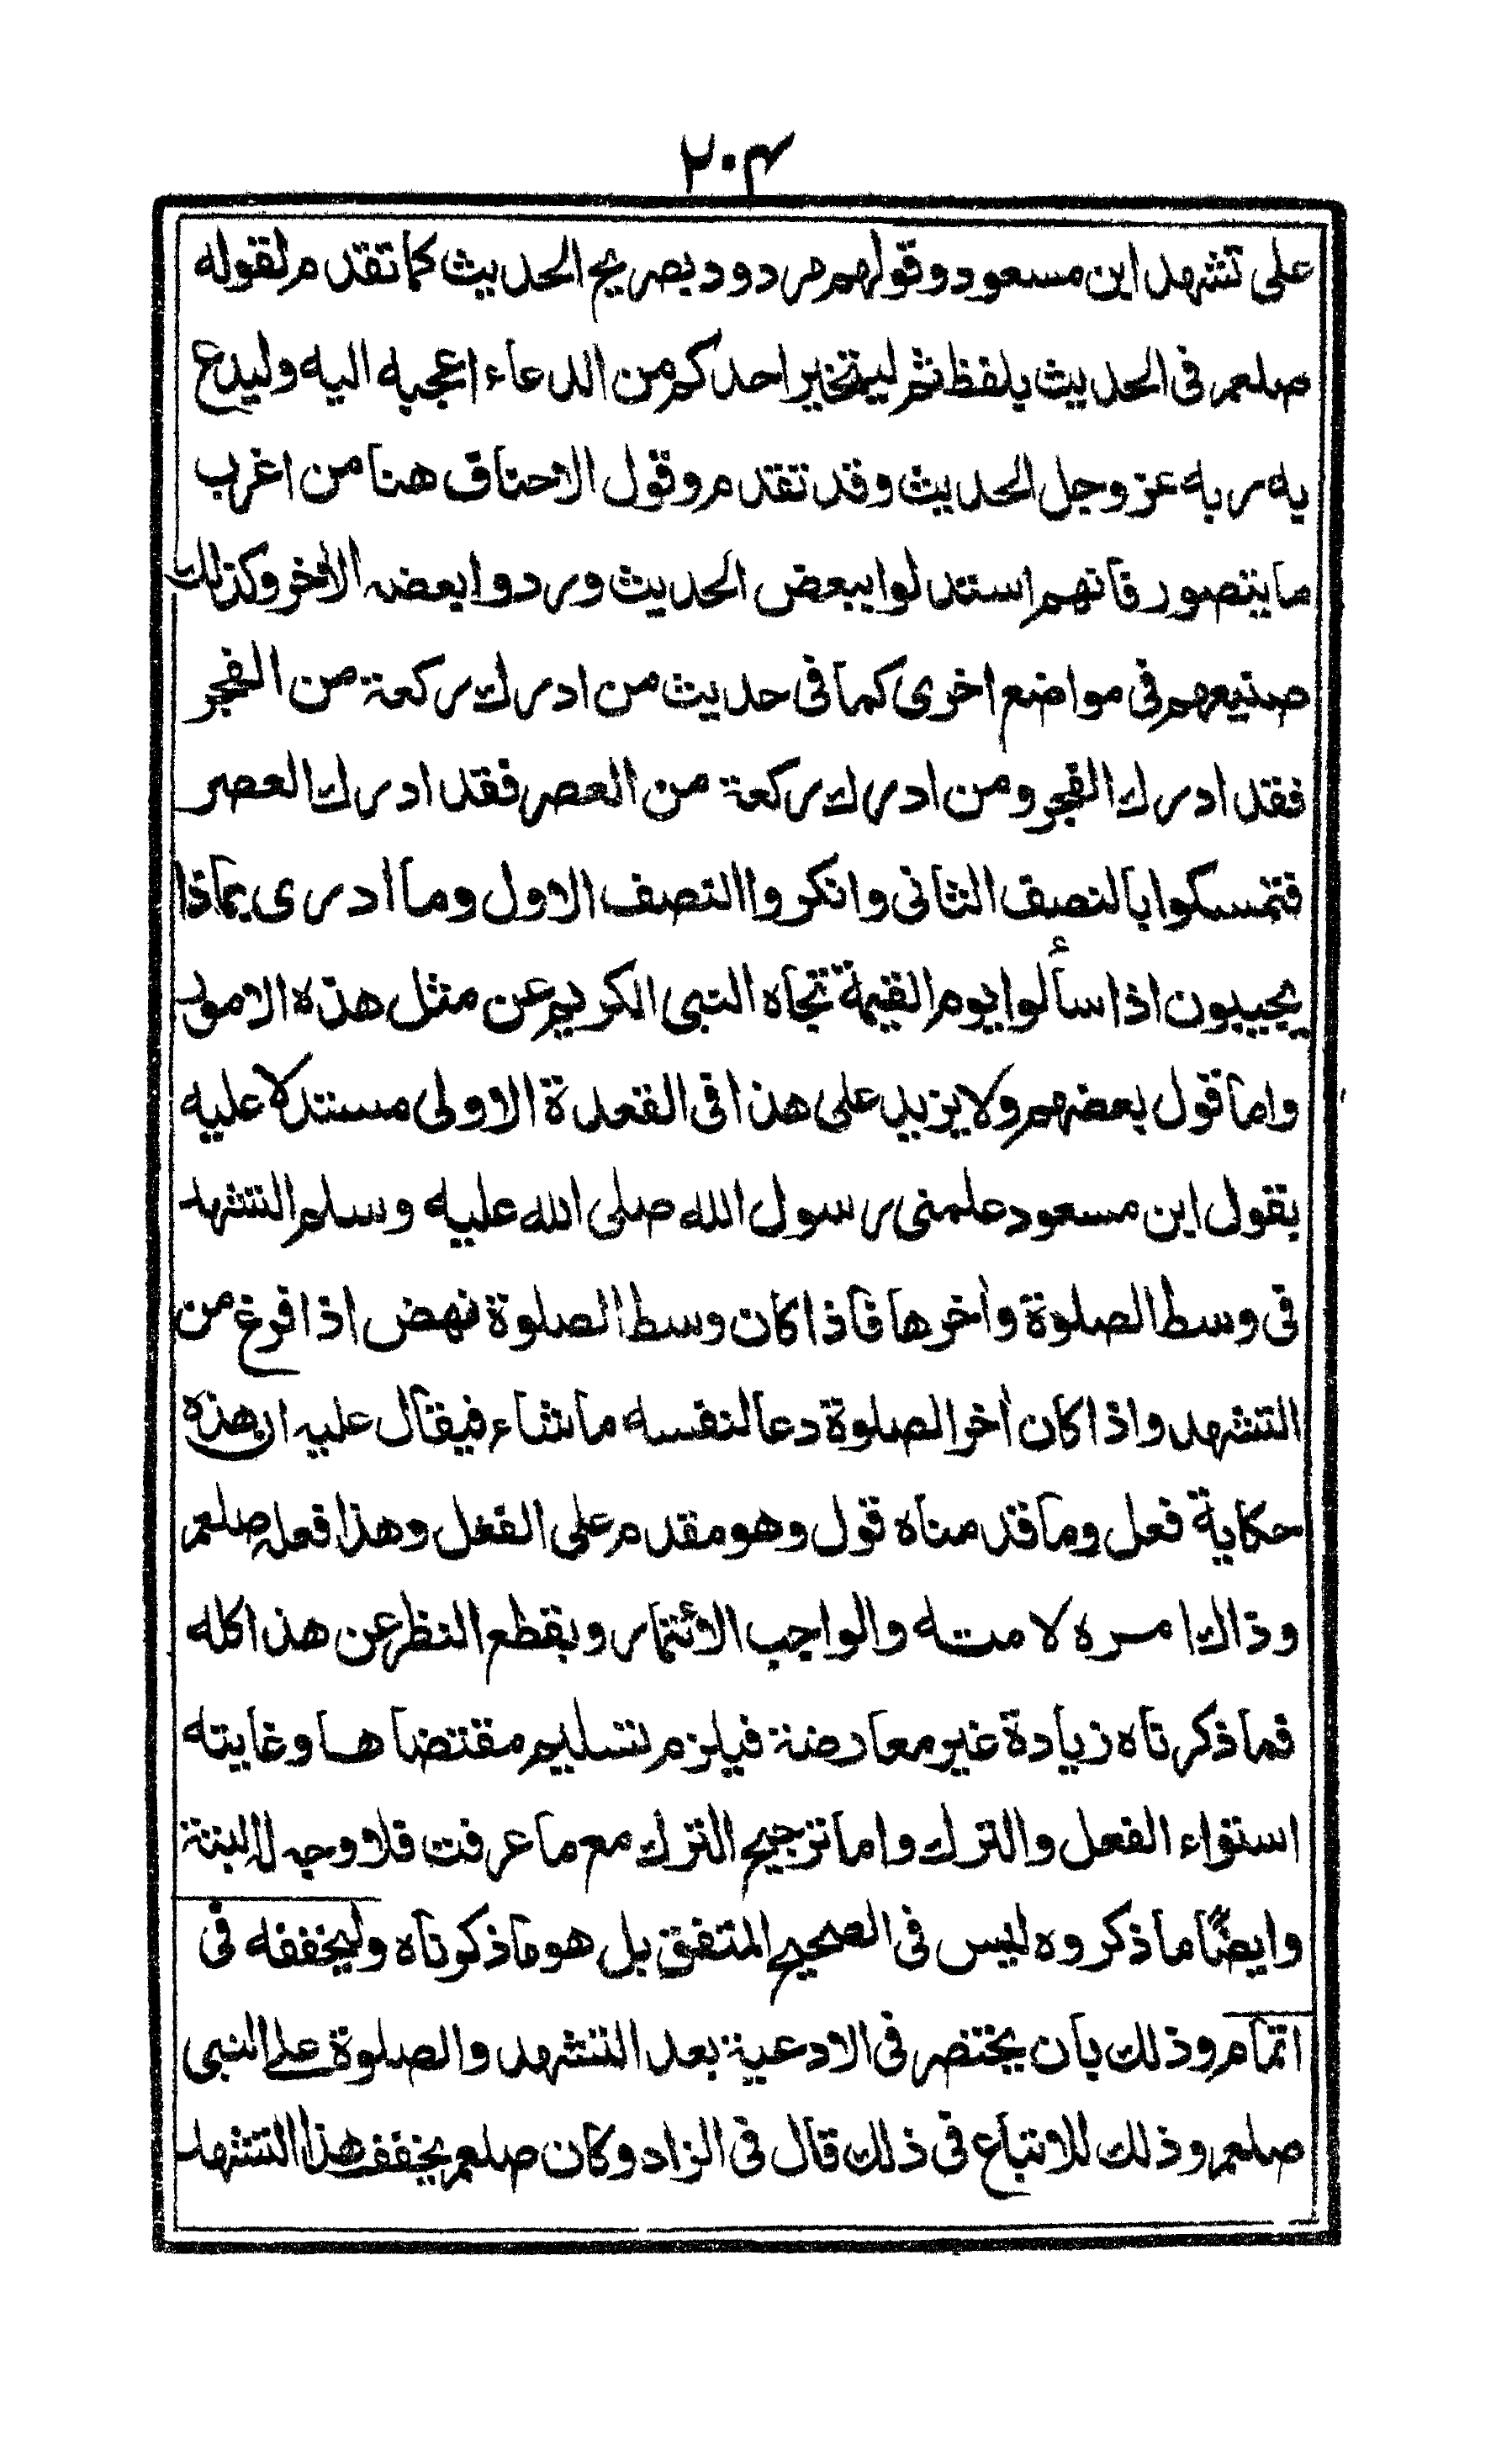 ٢٠٤
على تشهد ابن مسعود وقولهم مردود بصريح الحديث كما تقدم لقوله
صلعم فى الحديث بلفظ ثم ليتخير احدكم من الدعاء اعجبه اليه وليدع
به ربه عز وجل الحديث وقد تقدم وقول الاحناف هنا من اغرب
ما يتصور فانهم استدلوا ببعض الحديث وردوا بعضه الآخر وكذلك
صنيعهم فى مواضع اخرى كما فى حديث من ادرك ركعة من الفجر
فقد ادرك الفجر ومن ادرك ركعة من العصر فقد ادرك العصر
فتمسكوا بالنصف الثانى وانكروا النصف الاول وما ادرى بماذا
يجيبون اذا سألوا يوم القيمة تجاه النبى الكريم عن مثل هذه الامور
واما قول بعضهم ولا يزيد على هذا فى القعدة الاولى مستدلا عليه
بقول ابن مسعود علمنى رسول الله صلى الله عليه وسلم التشهد
فى وسط الصلوة وآخرها فاذا كان وسط الصلوة نهض اذا فرغ من
التشهد واذا كان آخر الصلوة دعا لنفسه ما شاء فيقال عليه ان هذه
حكاية فعل وما قدمناه قول وهو مقدم على الفعل وهذا فعله صلعم
وذاك امره لامته والواجب الائتمار وبقطع النظر عن هذا كله
فما ذكرناه زيادة غير معارضة فيلزم تسليم مقتضاها وغايته
استواء الفعل والترك واما ترجيح الترك مع ما عرفت فلا وجه له البتة
وايضًا ما ذكروه ليس فى الصحيح المتفق بل هو ما ذكرناه وليخففه فى
اتمام وذلك بان يختصر فى الادعية بعد التشهد والصلوة على النبى
صلعم وذلك للاتباع فى ذلك قال فى الزاد وكان صلعم يخفف هذا التشهد